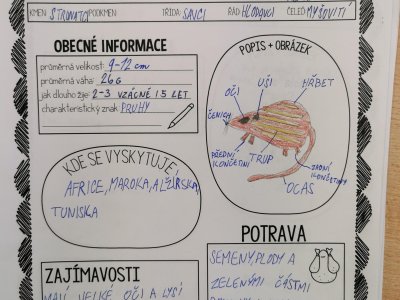 KMEN: STRUNATCI PODKMEN: TŘÍDA: SAVCI ŘÁD: HLODAVCI ČELEĎ: MYŠOVITÍ
OBECNÉ INFORMACE
průměrná velikost: 9-12 cm
průměrná váha: 26 G
jak dlouho žije: 2-3 VZÁCNĚ 15 LET
charakteristický znak: PRUHY
POPIS + OBRÁZEK
OČI
UŠI
HŘBET
ČENICH
PŘEDNÍ KONČETINY
TRUP
ZADNÍ KONČETINY
OCAS
KDE SE VYSKYTUJE
AFRICE, MAROKA, ALŽÍRSKA,
TUNISKA
POTRAVA
SEMENY PLODY A
ZELENÝMI ČÁSTMI
ZAJÍMAVOSTI
MAJÍ VELKÉ OČI A LYSÍ